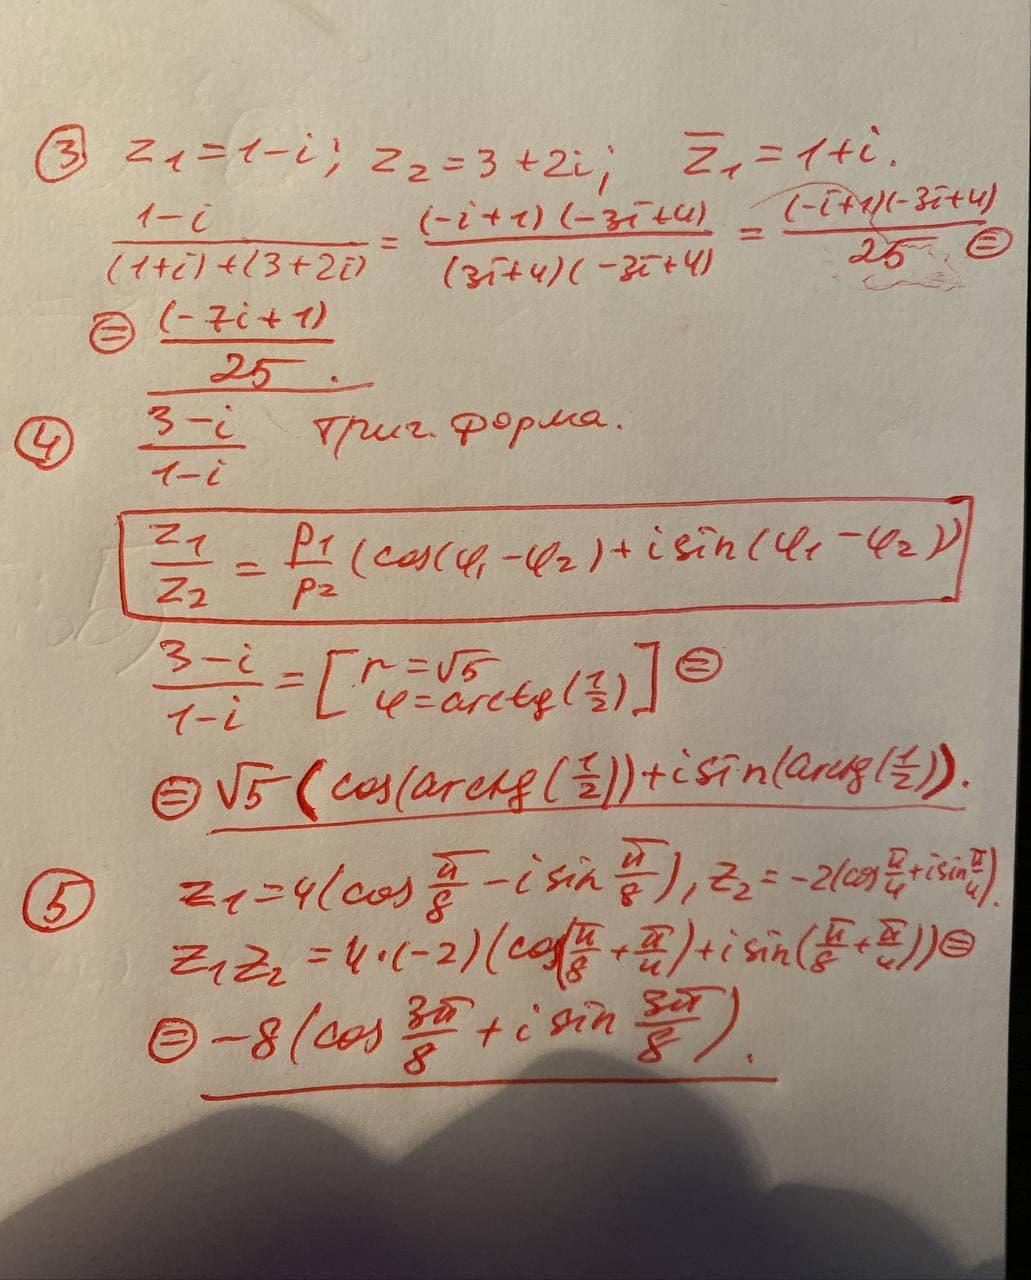 ③ z₁ = 1-i; z₂ = 3+2i; z̅₁ = 1+i.
(1-i)/((1+i)+(3+2i)) = ((-i+1)(-3i+4))/((3i+4)(-3i+4)) = ((-i+1)(-3i+4))/25 ⊜
⊜ (-7i+1)/25.
④ (3-i)/(1-i) триг. форма.
z₁/z₂ = ρ₁/ρ₂ (cos(φ₁-φ₂)+i sin(φ₁-φ₂))
(3-i)/(1-i) = [r=√5 φ=arctg(1/2)] ⊜
⊜ √5 (cos(arctg(1/2))+i sin(arctg(1/2)).
⑤ z₁=4(cos π/8 - i sin π/8), z₂ = -2(cos π/4 + i sin π/4).
z₁z₂ = 4·(-2)(cos(π/8 + π/4)+i sin(π/8 + π/4)) ⊜
⊜ -8(cos 3π/8 + i sin 3π/8).